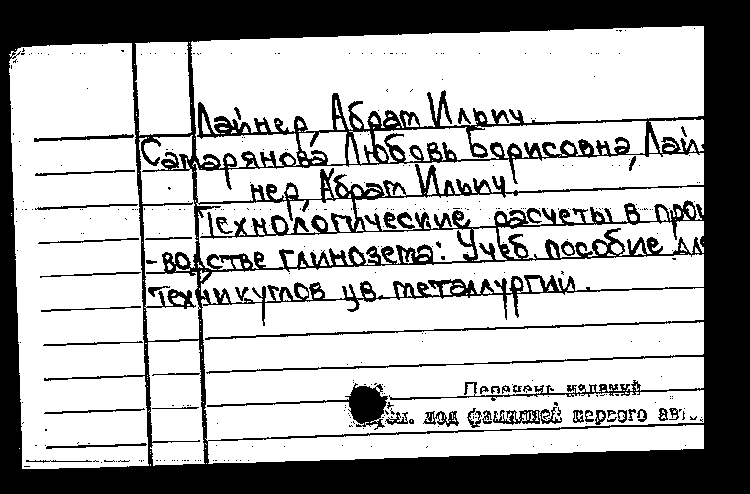 Лайнер, Абрам Ильич.
Самарянова Любовь Борисовна, Лай-
нер, Абрам Ильич!
Технологические расчеты в прои
-водстве глинозема: Учеб. пособие для
техникумов цв. металлургии.
Перечень изданий
см. под фамилией первого авт.